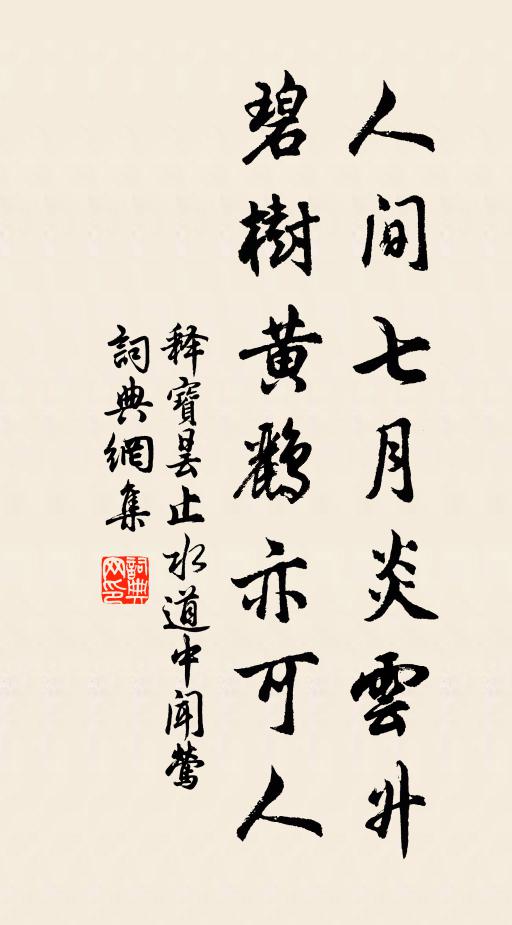 人间七月炎雲升
碧樹黄鸝亦可人
释寶昙止水道中闻鶯
詞典網集
詞典网印